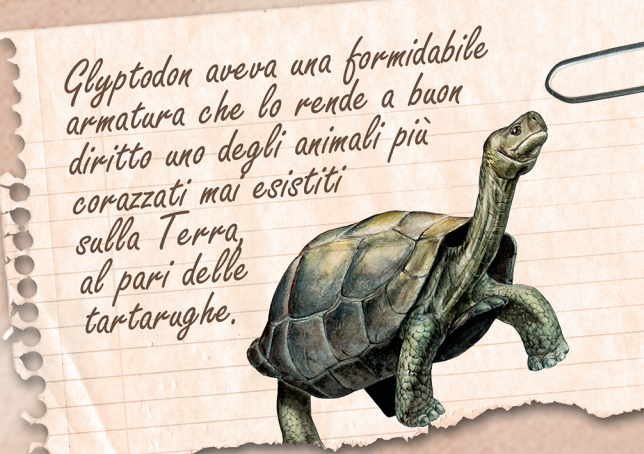 Glyptodon aveva una formidabile
armatura che lo rende a buon
diritto uno degli animali più
corazzati mai esistiti
sulla Terra,
al pari delle
tartarughe.